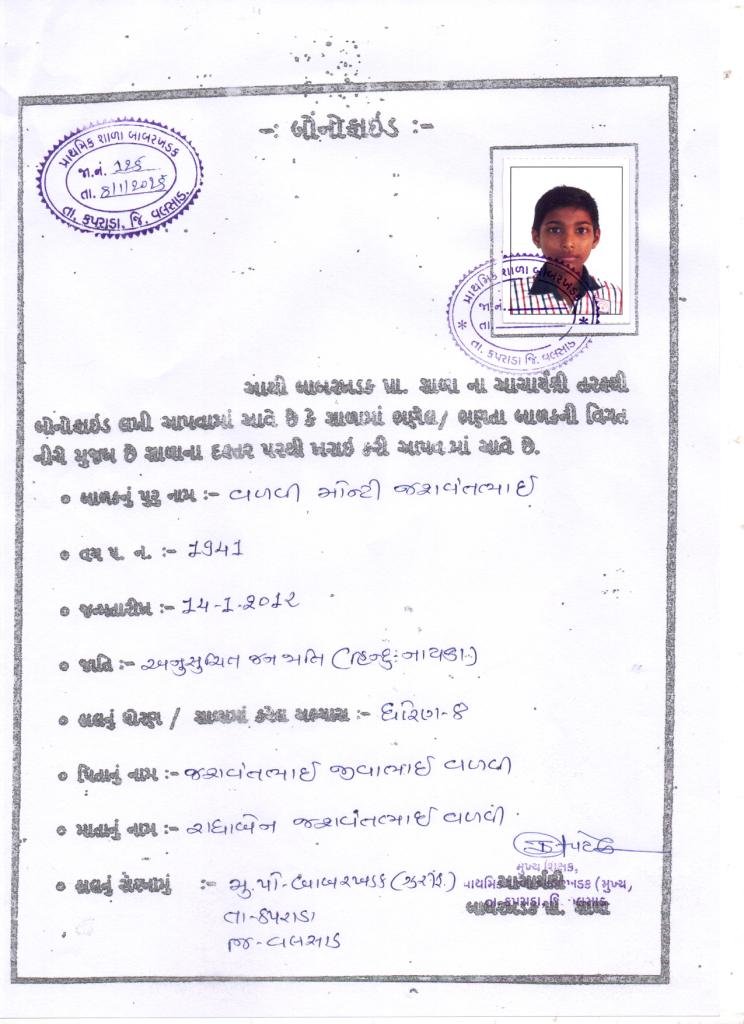 -: બોનોફાઇડ :-
પ્રાથમિક શાળા બાબરખડક
જા.નં. ૧૨૬
તા. 8/1/2025
તા. કપરાડા, જિ. વલસાડ.
પ્રાથમિક શાળા બાબરખડક
જા.નં.
તા.
તા. કપરાડા જિ. વલસાડ
આથી બાબરખડક પ્રા. શાળા ના આચાર્યશ્રી તરફથી
બોનોફાઇડ લખી આપવામાં આવે છે કે શાળામાં ભણેલ/ ભણતા બાળકની વિગત
નીચે મુજબ છે શાળાના દફતર પરથી ખરાઇ કરી આપવામાં આવે છે.
• બાળકનું પુરૂ નામ :- વળવી મોન્ટી જશવંતભાઈ
• વય પ. ન. :- 1941
• જન્મતારીખ :- 14-1-2012
• જાતિ :- અનુસુચિત જન જાતિ (હિન્દુ: નાયકા)
• હાલનું ધોરણ / શાળામાં કરેલ અભ્યાસ :- ધોરણ-8
• પિતાનું નામ :- જશવંતભાઈ જીવાભાઈ વળવી
• માતાનું નામ :- રાધાબેન જશવંતભાઈ વળવી
• હાલનું સરનામું :- મુ.પો-બાબરખડક
તા-કપરાડા
જિ-વલસાડ
મુખ્ય શિક્ષક,
આચાર્યશ્રી
બાબરખડક પ્રા. શાળા